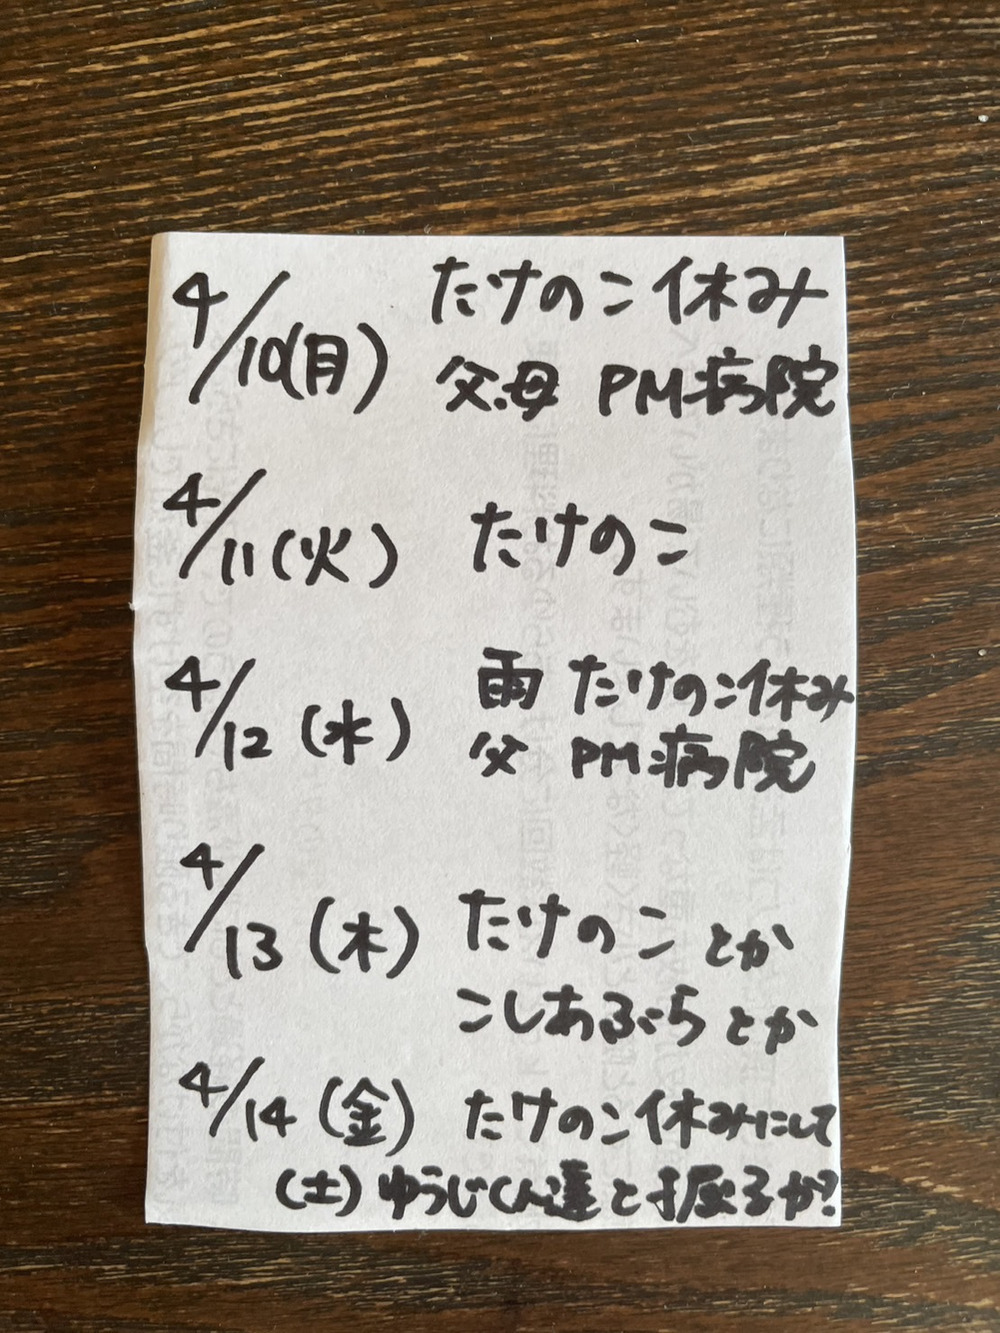 4/10(月) たけのこ休み
父母 PM病院
4/11(火) たけのこ
4/12(水) 雨 たけのこ休み
父 PM病院
4/13(木) たけのことか
こしあぶらとか
4/14(金) たけのこ休みにして
(土)ゆうじくん達と掘るか?